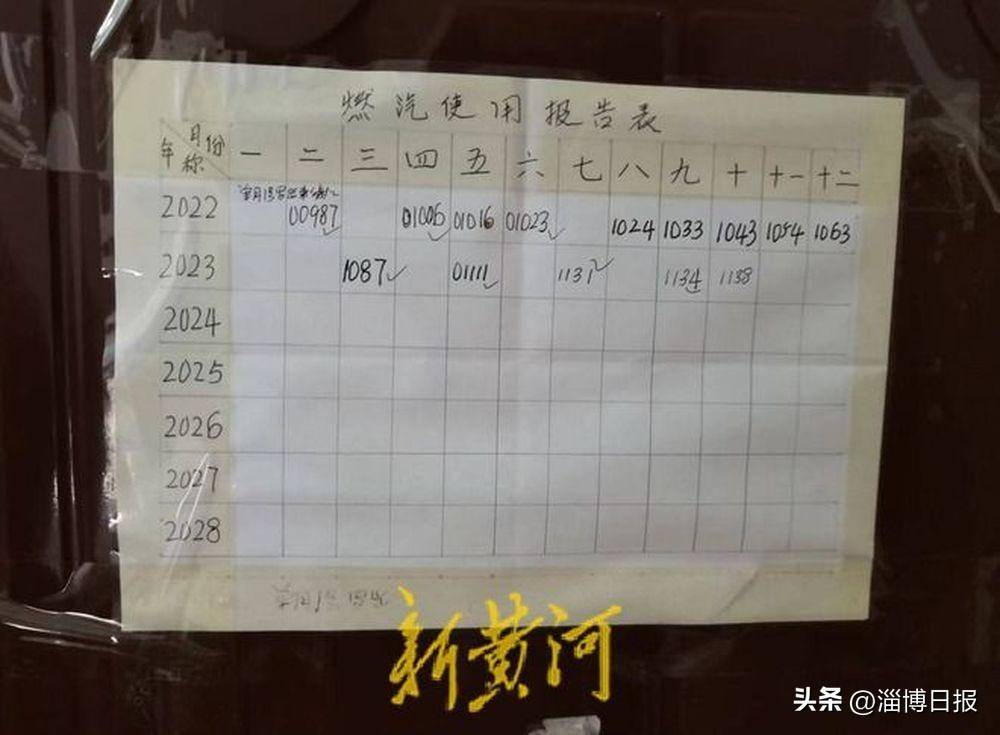 燃汽使用报告表
月份
年称 一 二 三 四 五 六 七 八 九 十 十一 十二
2022 00987 01006 01016 01023 1024 1033 1043 1054 1063
2023 1087 01111 1131 1134 1138
2024
2025
2026
2027
2028
新黄河
头条 @淄博日报